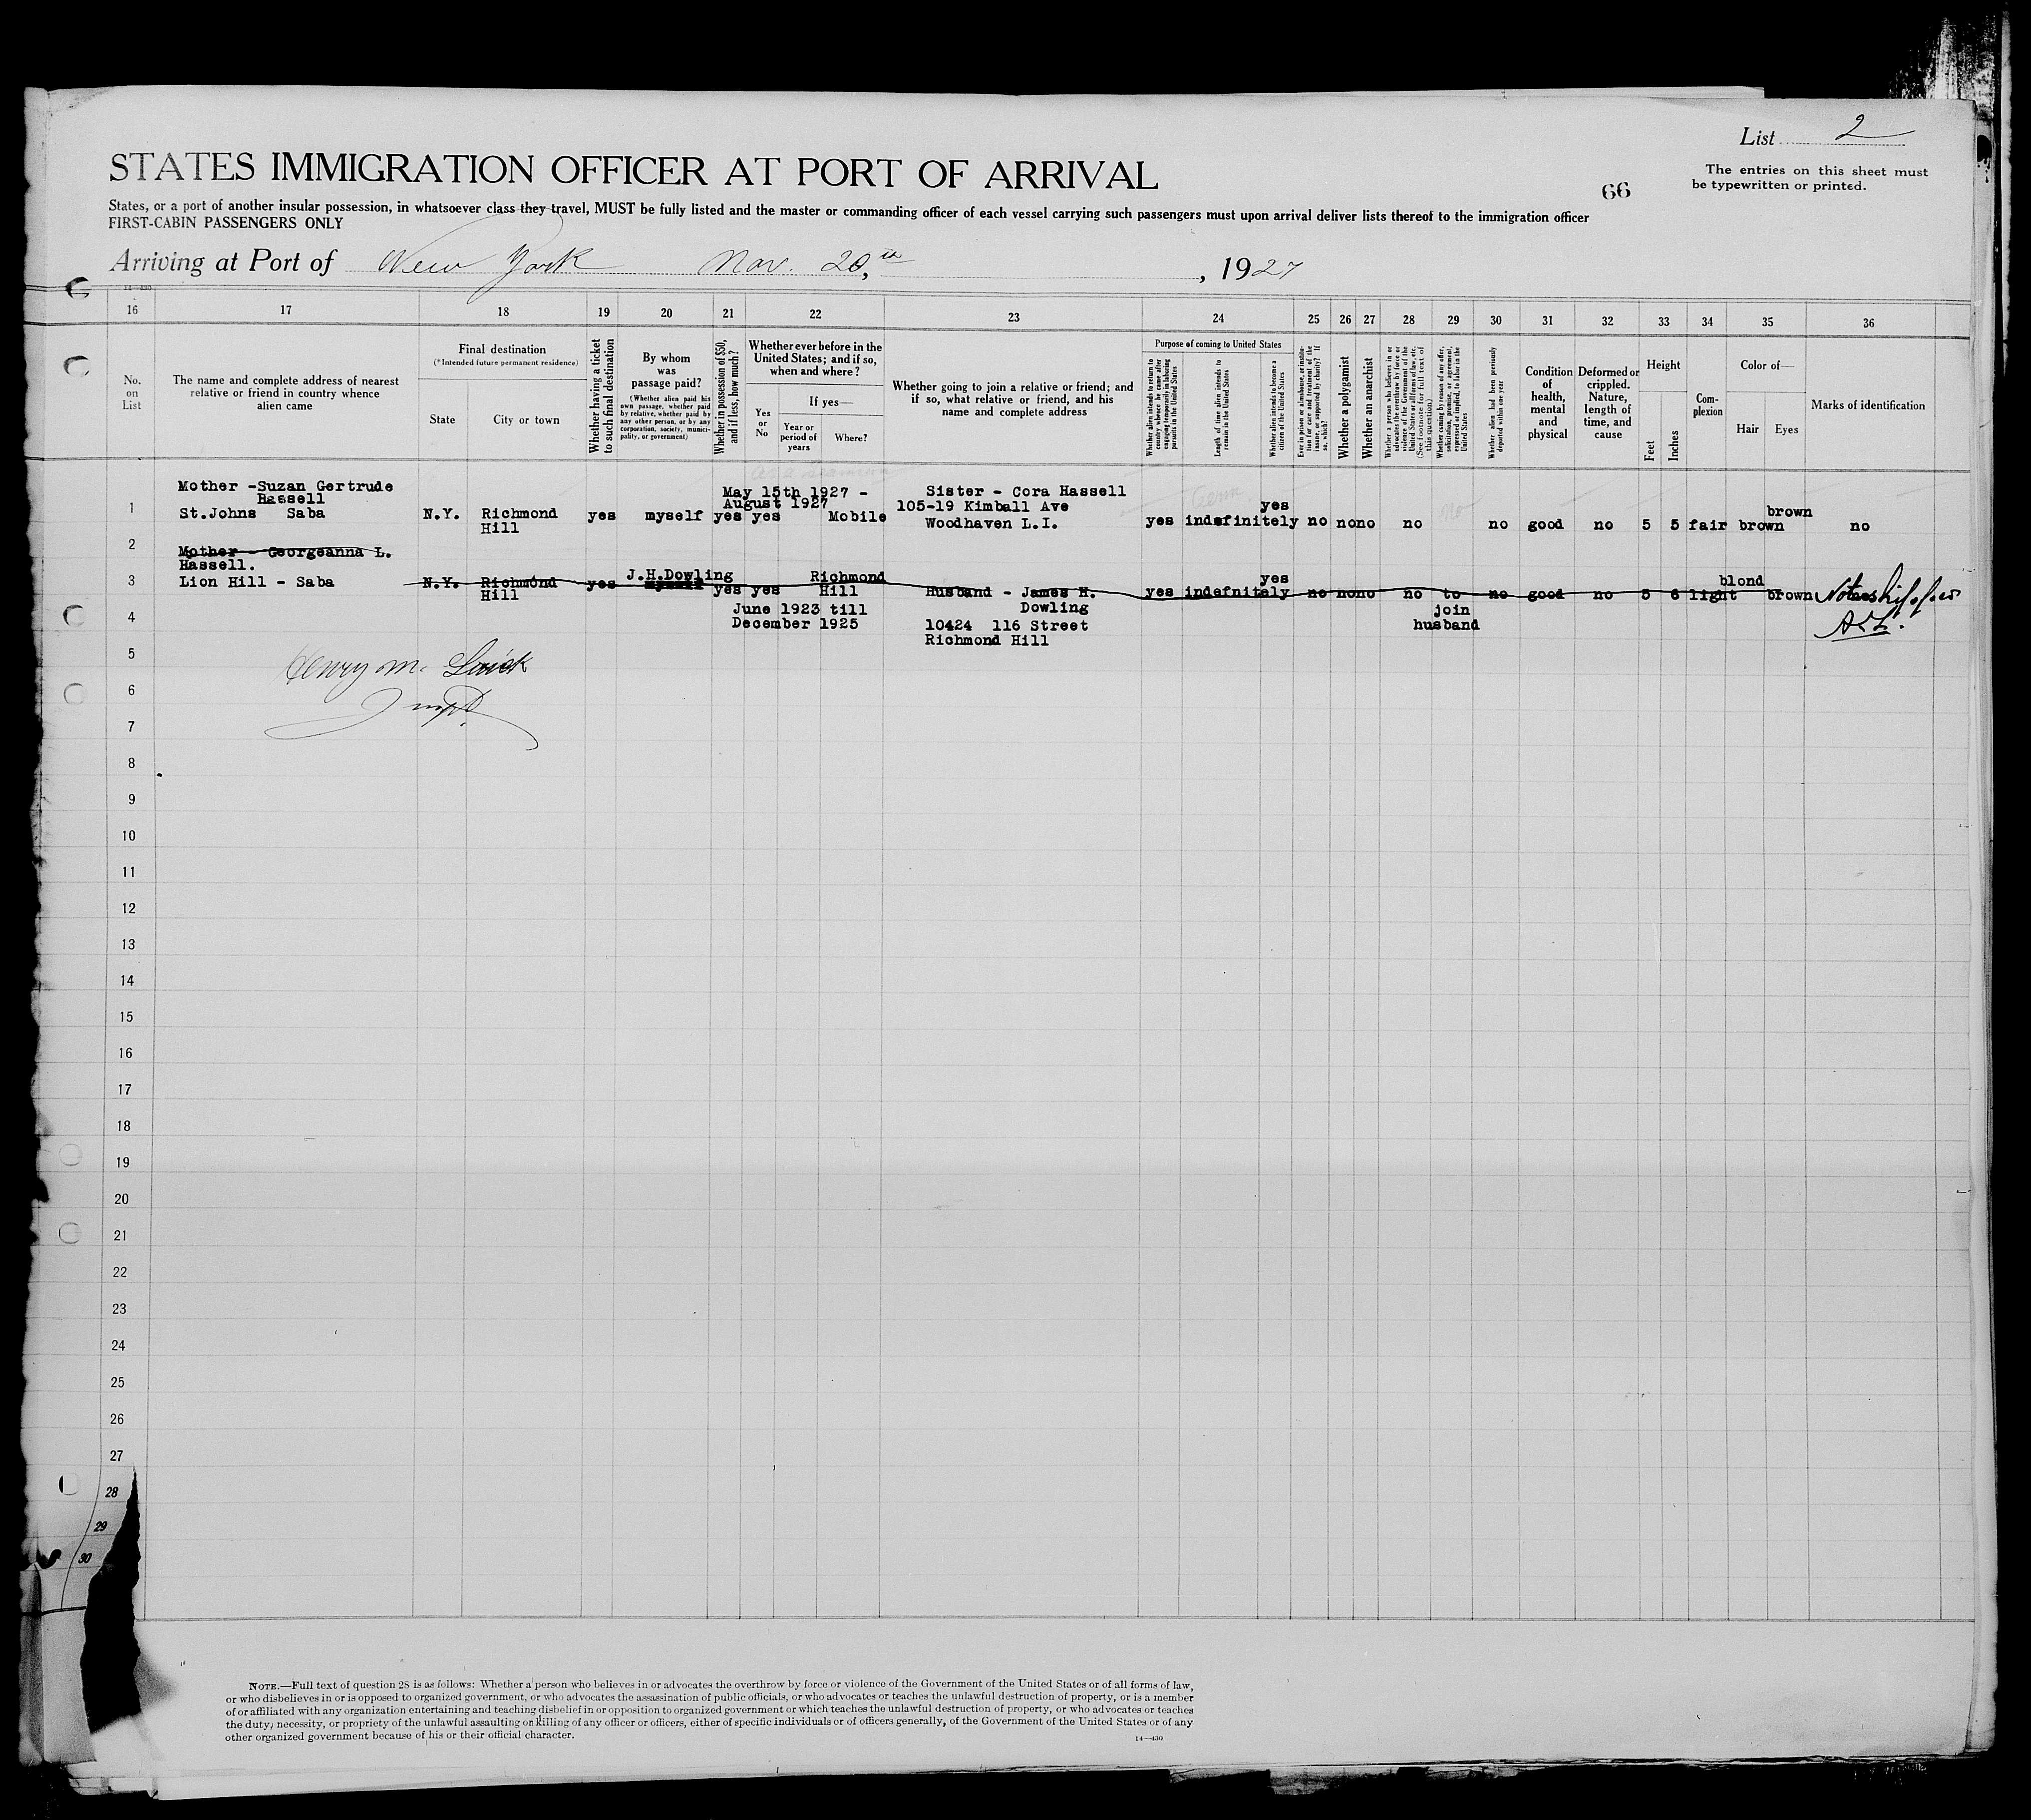 List 2
The entries on this sheet must
be typewritten or printed.
66
STATES IMMIGRATION OFFICER AT PORT OF ARRIVAL
States, or a port of another insular possession, in whatsoever class they travel, MUST be fully listed and the master or commanding officer of each vessel carrying such passengers must upon arrival deliver lists thereof to the immigration officer
FIRST-CABIN PASSENGERS ONLY
Arriving at Port of New York Nov. 20, th, 1927
14-430
16 17 18 19 20 21 22 23 24 25 26 27 28 29 30 31 32 33 34 35 36
No.
on
List
The name and complete address of nearest
relative or friend in country whence
alien came
Final destination
(*Intended future permanent residence)
State
City or town
Whether having a ticket
to such final destination
By whom
was
passage paid?
(Whether alien paid his
own passage, whether paid
by relative, whether paid by
any other person, or by any
corporation, society, munici-
pality, or government)
Whether in possession of $50,
and if less, how much?
Whether ever before in the
United States; and if so,
when and where?
Yes
or
No
If yes—
Year or
period of
years
Where?
Whether going to join a relative or friend; and
if so, what relative or friend, and his
name and complete address
Purpose of coming to United States
Whether alien intends to return to
country whence he came after
engaging temporarily in laboring
pursuits in the United States
Length of time alien intends to
remain in the United States
Whether alien intends to become a
citizen of the United States
Ever in prison or almshouse, or institu-
tion for care and treatment of the
insane, or supported by charity? If
so, which?
Whether a polygamist
Whether an anarchist
Whether a person who believes in or
advocates the overthrow by force or
violence of the Government of the
United States or all forms of law, etc.
(See footnote for full text of
this question)
Whether coming by reason of any offer,
solicitation, promise, or agreement,
expressed or implied, to labor in the
United States
Whether alien had been previously
deported within one year
Condition
of
health,
mental
and
physical
Deformed or
crippled.
Nature,
length of
time, and
cause
Height
Feet
Inches
Com-
plexion
Color of—
Hair
Eyes
Marks of identification
1
Mother -Suzan Gertrude
Hassell
St.Johns Saba
N.Y.
Richmond
Hill
yes
myself
yes yes
May 15th 1927 -
August 1927
Mobile
Sister - Cora Hassell
105-19 Kimball Ave
Woodhaven L.I.
yes indefinitely
yes
no nono no
no
no good no 5 5 fair brown
brown
no
2
Mother - Georgeanna L.
Hassell.
3
Lion Hill - Saba
N.Y.
Richmond
Hill
yes
J.H.Dowling
myself
yes yes
Richmond
Hill
June 1923 till
December 1925
Husband - James H.
Dowling
10424 116 Street
Richmond Hill
yes indefnitely
yes
no nono no to
join
husband
no good no 5 6 light
blond
brown
4
5
Henry M.
6
Insp.
7
8
9
10
11
12
13
14
15
16
17
18
19
20
21
22
23
24
25
26
27
28
29
30
NOTE.—Full text of question 28 is as follows: Whether a person who believes in or advocates the overthrow by force or violence of the Government of the United States or of all forms of law,
or who disbelieves in or is opposed to organized government, or who advocates the assassination of public officials, or who advocates or teaches the unlawful destruction of property, or is a member
of or affiliated with any organization entertaining and teaching disbelief in or opposition to organized government or which teaches the unlawful destruction of property, or who advocates or teaches
the duty, necessity, or propriety of the unlawful assaulting or killing of any officer or officers, either of specific individuals or of officers generally, of the Government of the United States or of any
other organized government because of his or their official character.
14—430